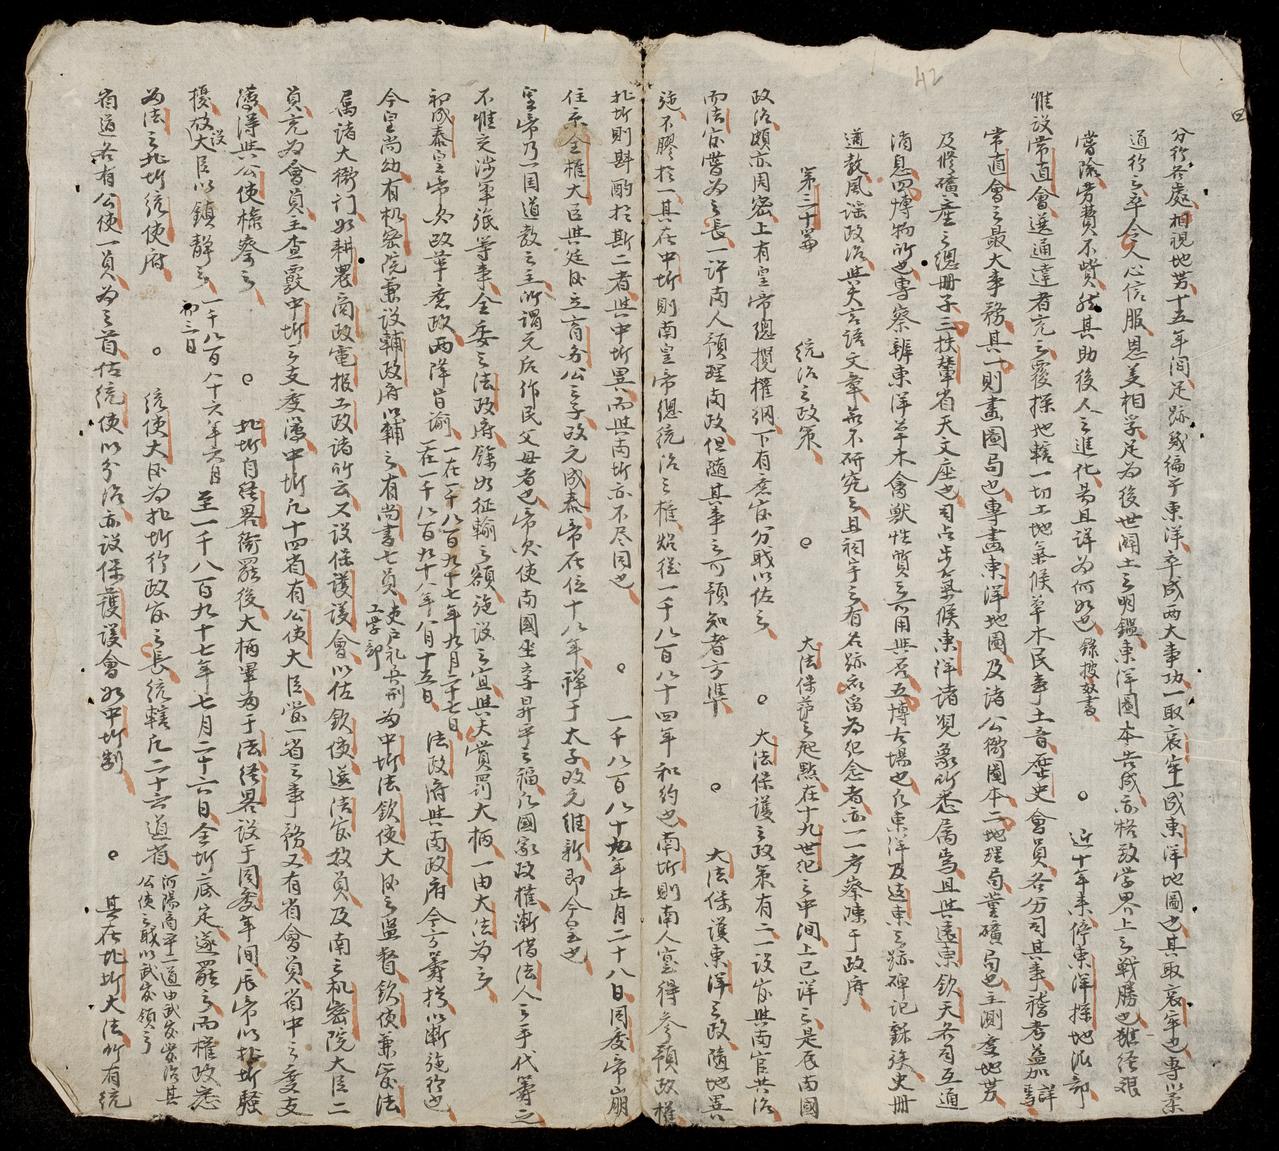 42
分行各處相現地势十五年间足跡幾徧于東洋卒成两大事功一取哀牢一成東洋地圖也其取哀牢也専以柔
道行之卒令人心信服恩美相孚足為後世闢土之明鑑東洋圖本告成亦格致学界上之戦勝也雖經艱
嘗險劳費不赀然其助後人之進化曷且详為何如也 錄披拏書 ○ 近十年来停東洋探地派部
惟設常直會選通達者充之覆探地轄一切土地氣候草木民事土音歷史會員各分司其事稽考益加詳
常直會之最大事務其一則畫圖局也専畫東洋地圖及诸公衙圖本二地理局董礦局也主測度地势
及修礦產之總冊子三扶輦省天文座也司占步氣候東洋诸現象所悉属焉且與遠東欽天各司互通
消息四博物所也専察辨東洋草木禽獸性質之所用與否五博古場也凡東洋及遠東之跡碑记録史冊
道教風谣政治與夫言語文章莫不研究之且祠宇之有名跡衣留為犯念者亦一一考察陳于政府
第三十篇 統治之政策 ○ 大法保護之起點在十九世纪之中间上已详之是辰南國
政治頗亦周密上有皇帝總攬權綱下有庶官分戝以佐之 ○ 大法保護之政策有二一設官與南官共治
而法官嘗為之長一许南人預理南政但隨其事之可預知者方準 ○ 大法保護東洋之政隨地異
施不膠於一其在中圻則南皇帝總統治之權始從一千八百八十四年和約也南圻則南人室得參預政權
北圻則斟酌於斯二者與中圻異而與南圻亦不尽同也 ○ 一千八百八十九年正月二十八日同慶帝崩
住京全權大臣與廷臣立育务公之子政元成泰帝在位十八年禅于太子改元維新即今皇也
皇帝乃一国道教之主所谓元后作民父母者也帝必使南國坐享昇平之福凡國家政權漸借法人之手代筹之
不惟交涉軍張等事全委之法政府餘如征輸之額施設之宜與夫賞罰大柄一由大法為之
初成泰皇帝欠政革庶政两降旨谕 一在一千八百九十七年九月二十七日一在一千八百九十八年八月十五日 法政府與南政府今方籌採以漸施行也
今皇尚幼有机密院兼設輔政府以輔之有尚書七員 吏戸礼兵刑工学部 為中圻法欽使大臣之监督欽使兼官法
属诸大衙门如耕農商政電报工政诸所云又設保護議會以佐欽使选法官数員及南之机密院大臣二
員充為會員主查霞中圻之支度凑中圻凡十四省有公使大臣掌一省之事務又有省會員省中之度支
凑得與公使條奏之 ○ 北圻自經畧衙罷後大柄軍為于法經畧設于同慶年间辰帝以北圻騷
擾放設大臣以鎮静之 一千八百八十六年六月初三日 至一千八百九十七年七月二十六日全圻底定遂罷之而權政悉
為法之北圻統使府 ○ 統使大臣為北圻行政官之長統轄凡二十六道省 河陽高平二道由武官掌治其公使之戝以武官領之
省道各有公使一員為之首佐統使以分治亦設保護議會如中圻制 ○ 其在北圻大法所有統